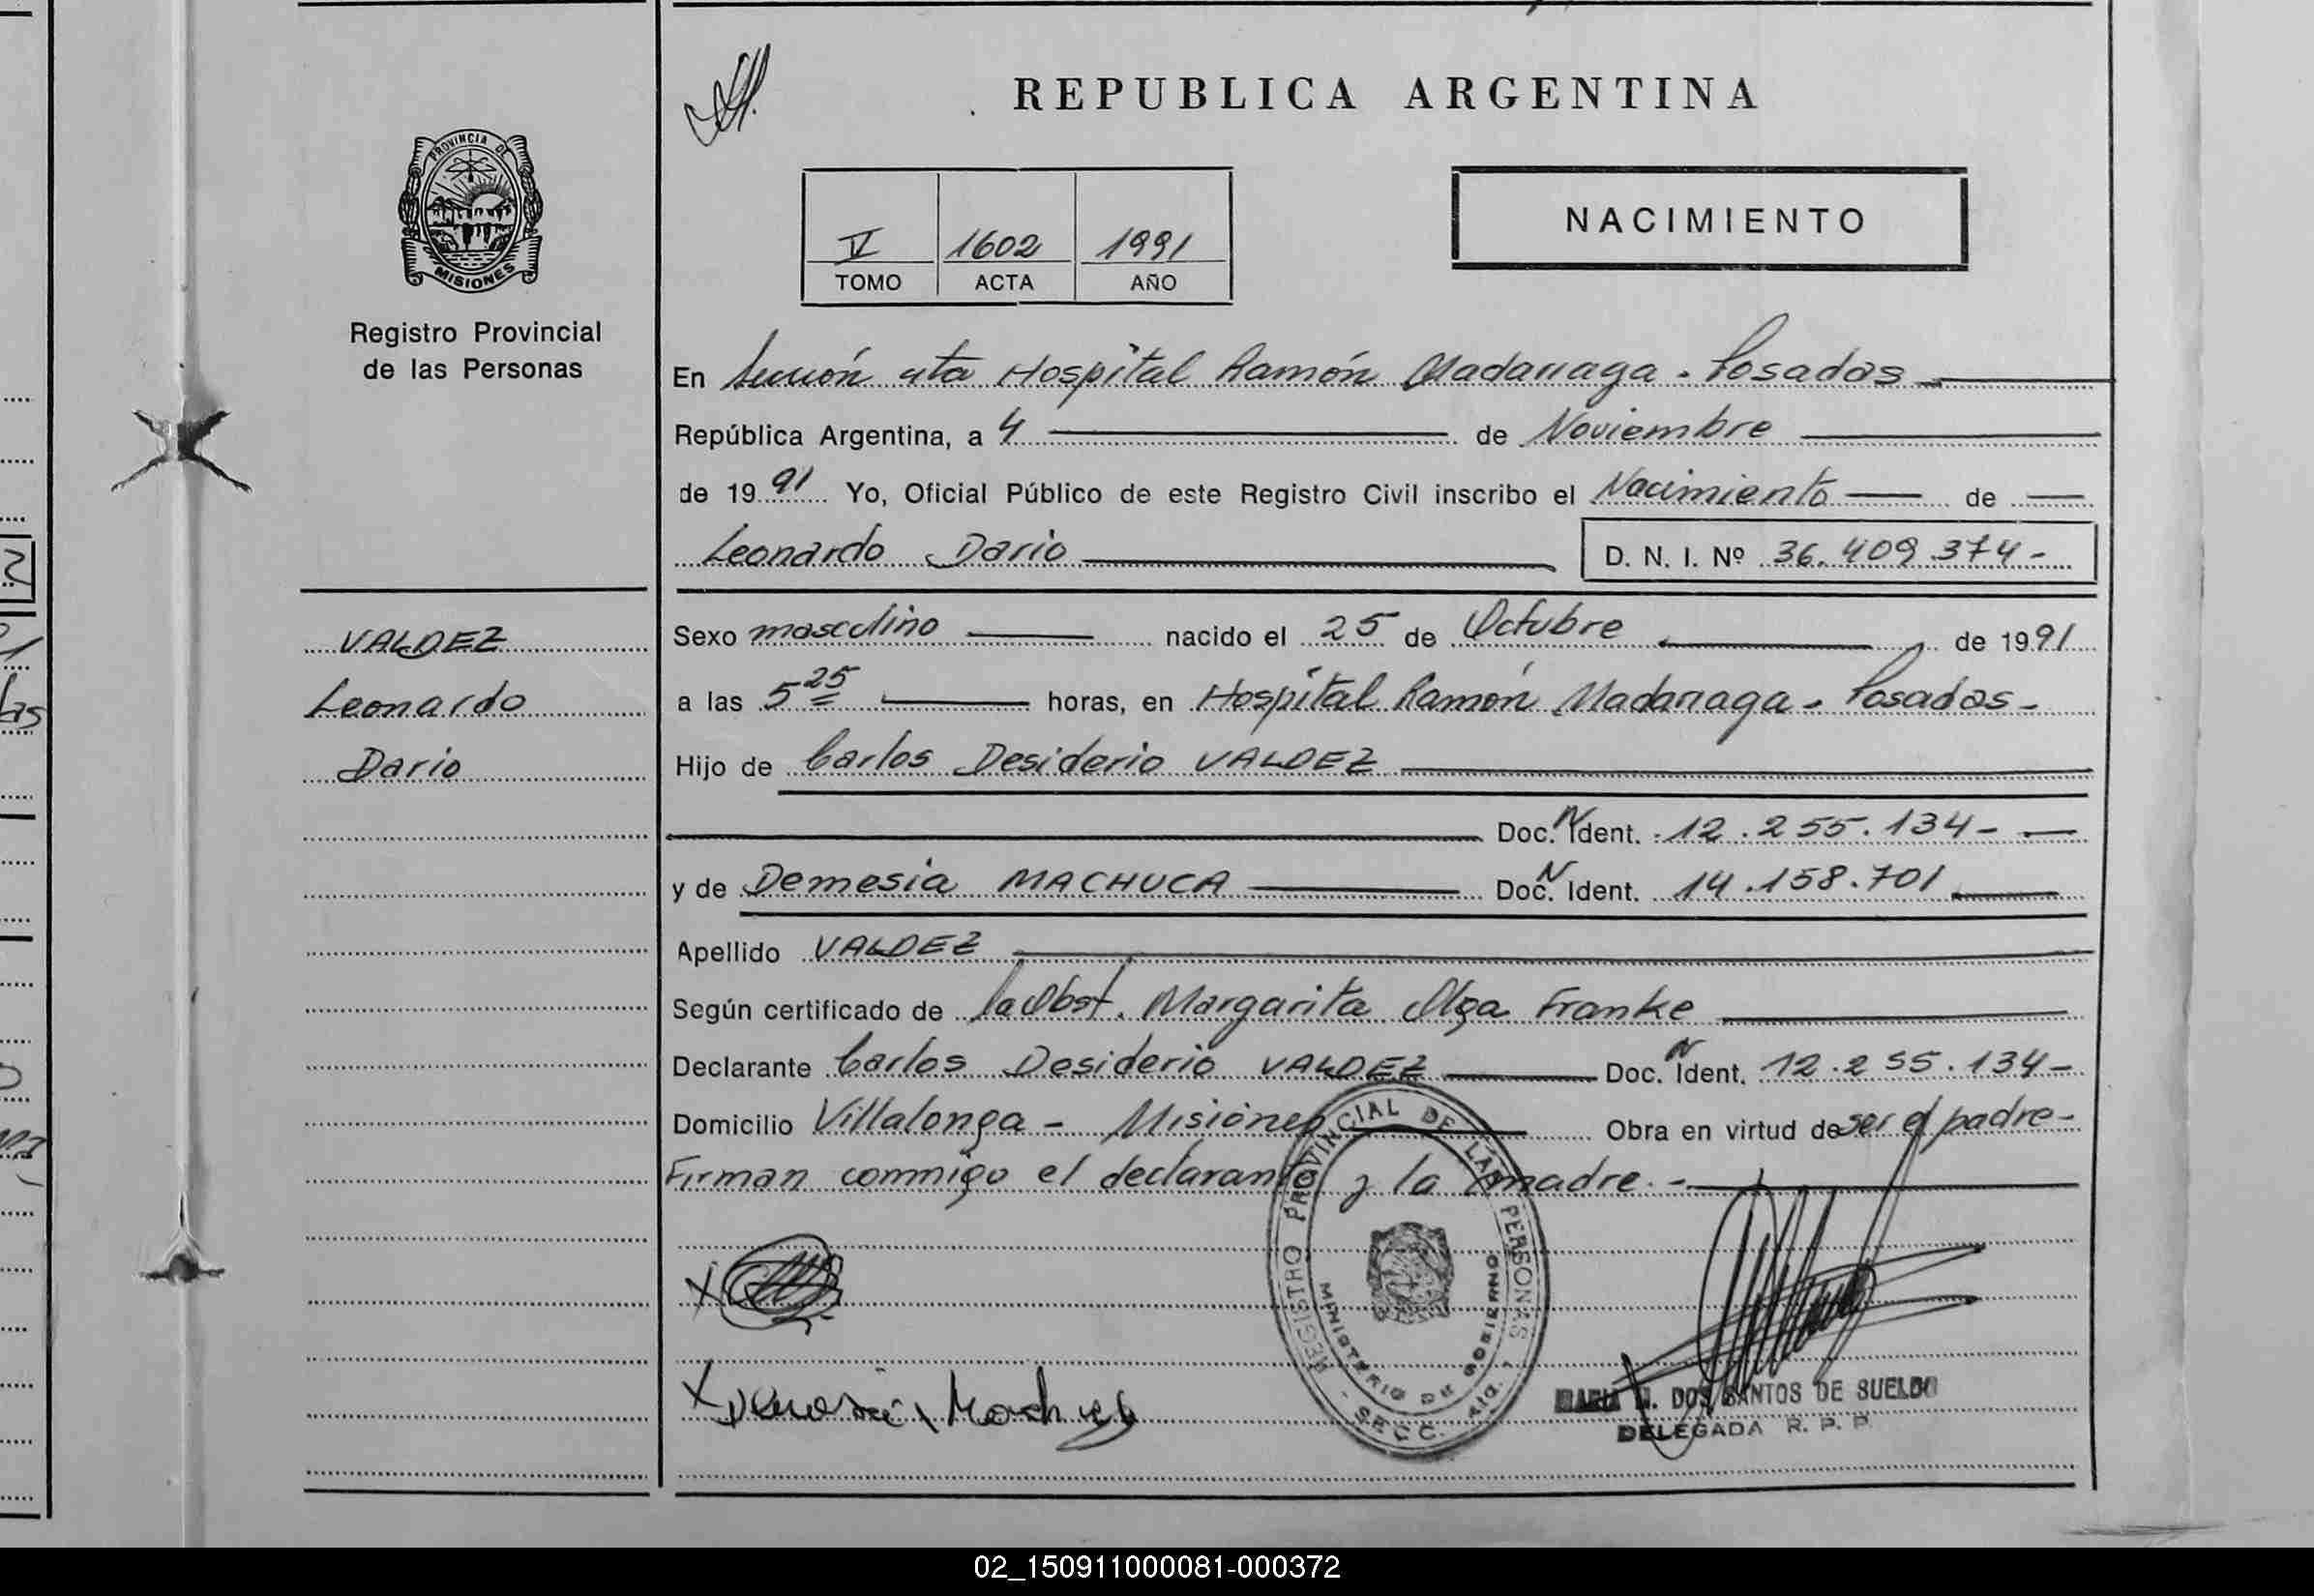 REPUBLICA ARGENTINA
PROVINCIA DE
MISIONES
Registro Provincial
de las Personas
V 1602 1991
TOMO ACTA AÑO
NACIMIENTO
En Sección 4ta Hospital Ramón Madariaga - Posadas
República Argentina, a 4 de Noviembre
de 1991 Yo, Oficial Público de este Registro Civil inscribo el Nacimiento de
Leonardo Dario D. N. I. Nº 36.409.374-
VALDEZ
Leonardo
Dario
Sexo masculino nacido el 25 de Octubre de 1991
a las 5 25 horas, en Hospital Ramón Madariaga - Posadas -
Hijo de Carlos Desiderio VALDEZ
Doc. N Ident. 12.255.134-
y de Demesia MACHUCA Doc. N Ident. 14.158.701
Apellido VALDEZ
Según certificado de la Obst. Margarita Olga Franke
Declarante Carlos Desiderio VALDEZ Doc. N Ident. 12.255.134-
Domicilio Villalonga - Misiones Obra en virtud de ser el padre -
Firman conmigo el declarante y la madre. -
REGISTRO PROVINCIAL DE LAS PERSONAS
MINISTERIO DE GOBIERNO
SECC. 4ta.
X
X Demesia Machuca
DOS SANTOS DE SUELDO
DELEGADA R. P. P.
02_150911000081-000372